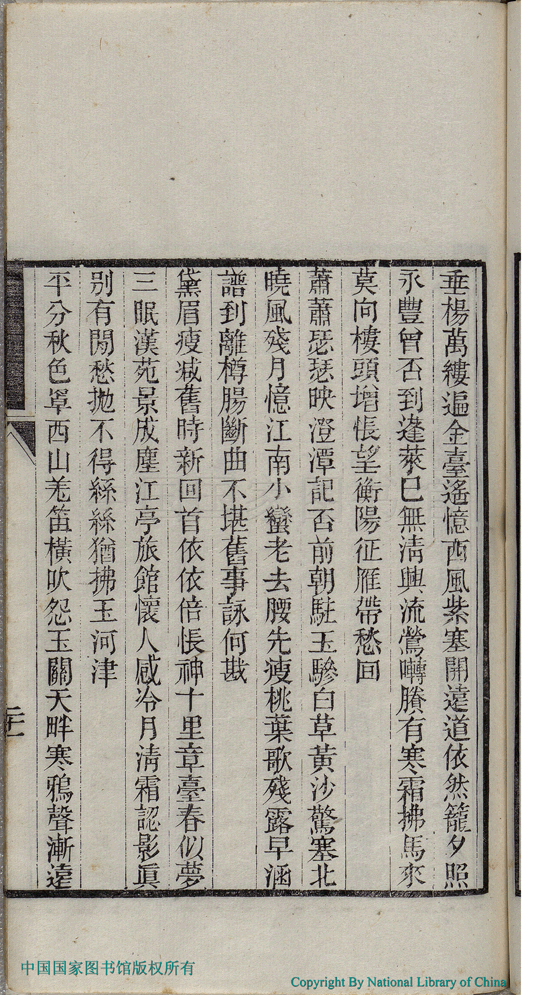 垂楊萬縷遍金臺遙憶西風紫塞開遠道依然籠夕照
永豐曾否到蓬萊已無淸興流鶯囀賸有寒霜拂馬來
莫向樓頭增悵望衡陽征雁帶愁回
蕭蕭瑟瑟映澄潭記否前朝駐玉驂白草黃沙驚塞北
曉風殘月憶江南小蠻老去腰先瘦桃葉歌殘露早涵
譜到離樽腸斷曲不堪舊事詠何戡
黛眉瘦减舊時新回首依依倍悵神十里章臺春似夢
三眠漢苑景成塵江亭旅館懷人感冷月淸霜認影眞
別有閒愁拋不得絲絲猶拂玉河津
平分秋色罩西山羌笛橫吹怨玉關天畔寒鴉聲漸遠
二十一
中国国家图书馆版权所有
Copyright By National Library of China